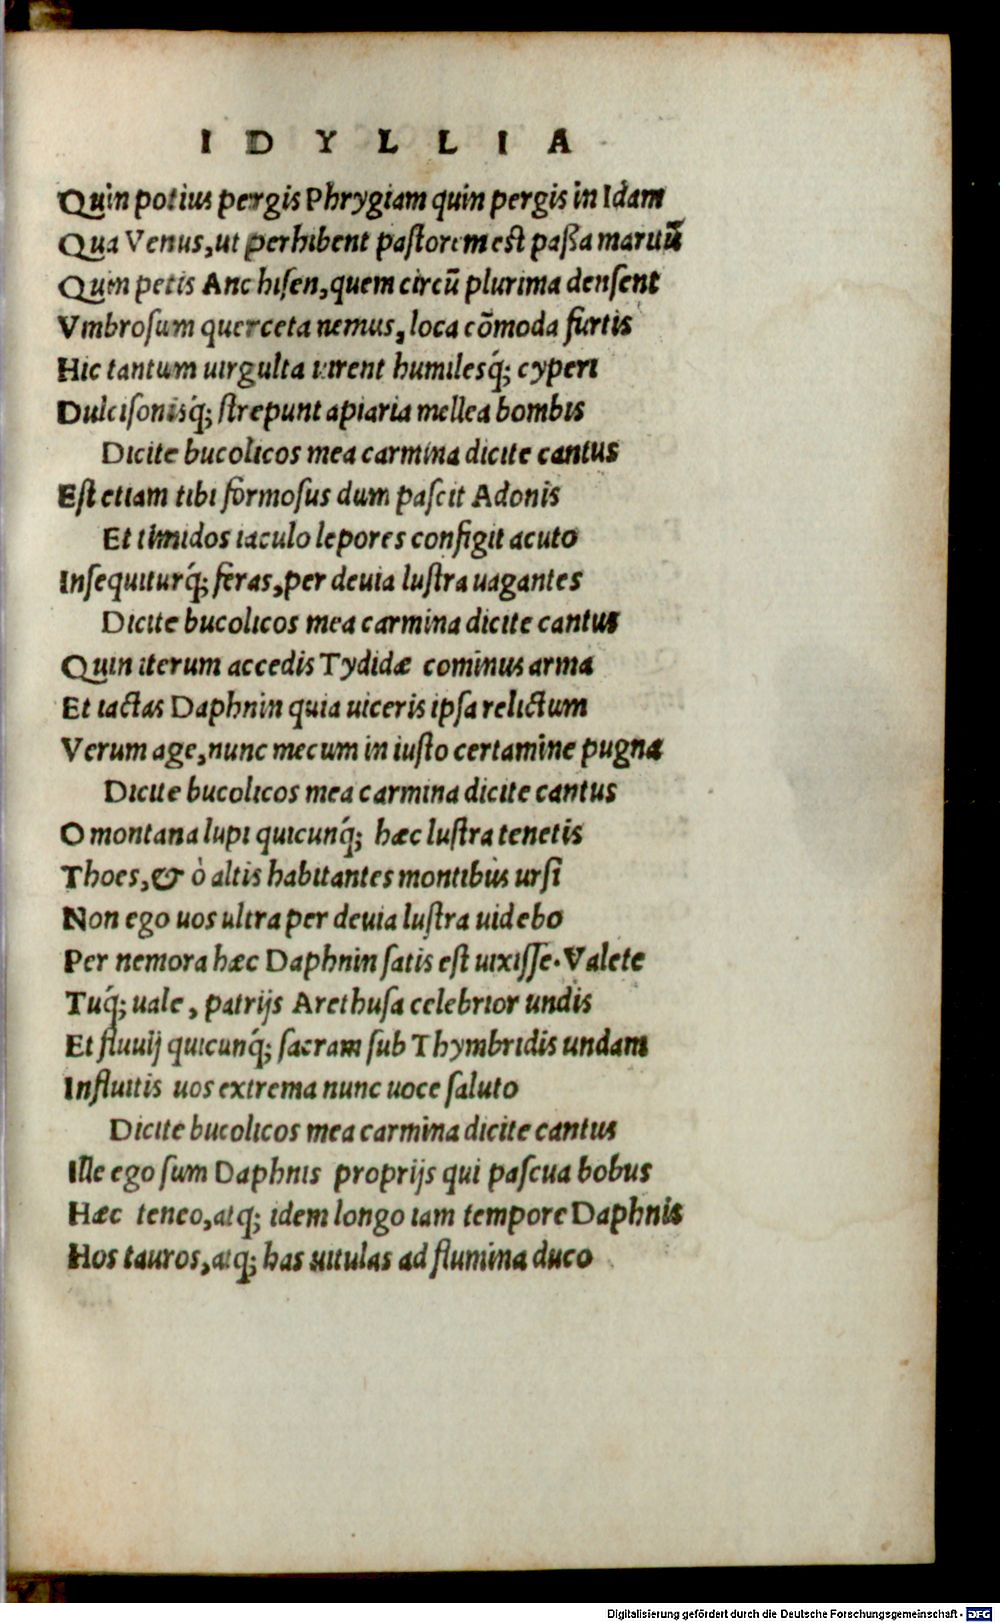 IDYLLIA
Quin potius pergis Phrygiam quin pergis in Idam
Qua Venus, ut perhibent pastorem est paßa maritũ
Quin petis Anchisen, quem circũ plurima densent
Vmbrosum querceta nemus, loca cõmoda furtis
Hic tantum uirgulta uirent humilesq́; cyperi
Dulcisonisq́; strepunt apiaria mellea bombis
Dicite bucolicos mea carmina dicite cantus
Est etiam tibi formosus dum pascit Adonis
Et timidos iaculo lepores configit acuto
Insequiturq́; feras, per deuia lustra uagantes
Dicite bucolicos mea carmina dicite cantus
Quin iterum accedis Tydidæ cominus arma
Et iactas Daphnin quia uiceris ipsa relictum
Verum age, nunc mecum in iusto certamine pugna
Dicite bucolicos mea carmina dicite cantus
O montana lupi quicunq́; hæc lustra tenetis
Thoes, & ò altis habitantes montibus ursi
Non ego uos ultra per deuia lustra uidebo
Per nemora hæc Daphnin satis est uixisse. Valete
Tuq́; uale, patrijs Arethusa celebrior undis
Et fluuij quicunq́; sacram sub Thymbridis undam
Influitis uos extrema nunc uoce saluto
Dicite bucolicos mea carmina dicite cantus
Ille ego sum Daphnis proprijs qui pascua bobus
Hæc teneo, atq; idem longo iam tempore Daphnis
Hos tauros, atq; has uitulas ad flumina duco
Digitalisierung gefördert durch die Deutsche Forschungsgemeinschaft - DFG